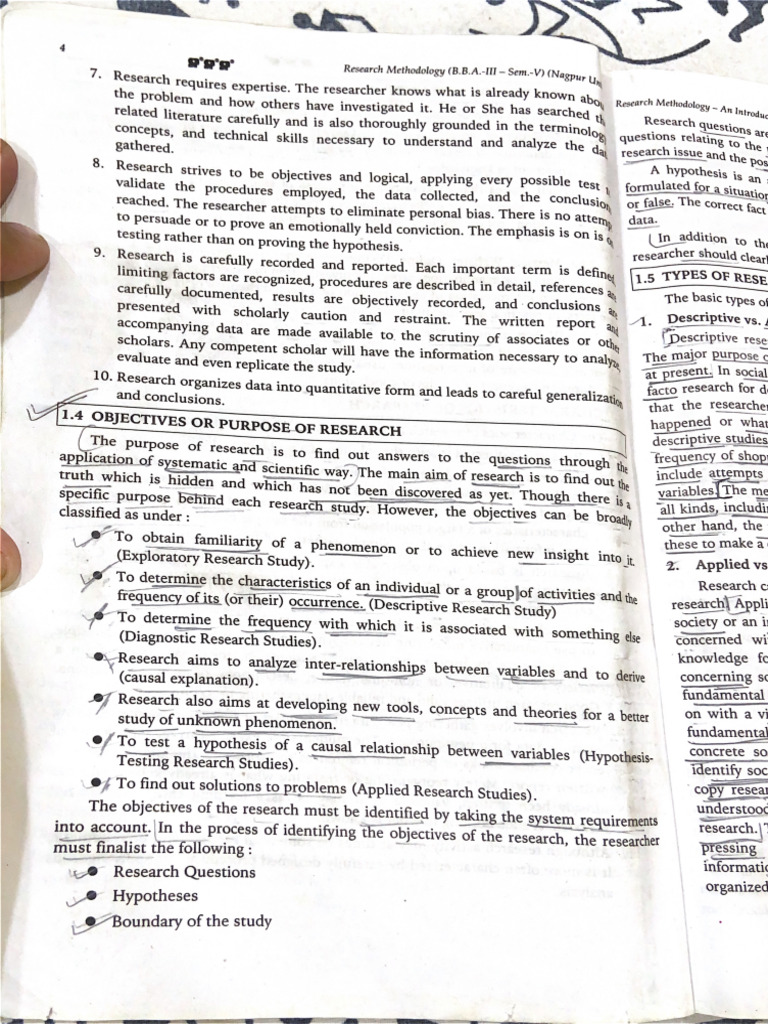 4
Research Methodology (B.B.A.-III – Sem.-V) (Nagpur Un
7. Research requires expertise. The researcher knows what is already known abo
the problem and how others have investigated it. He or She has searched t
related literature carefully and is also thoroughly grounded in the terminolog
concepts, and technical skills necessary to understand and analyze the da
gathered.
8. Research strives to be objectives and logical, applying every possible test
validate the procedures employed, the data collected, and the conclusion
reached. The researcher attempts to eliminate personal bias. There is no attem
to persuade or to prove an emotionally held conviction. The emphasis is on is
testing rather than on proving the hypothesis.
9. Research is carefully recorded and reported. Each important term is define
limiting factors are recognized, procedures are described in detail, references a
carefully documented, results are objectively recorded, and conclusions a
presented with scholarly caution and restraint. The written report and
accompanying data are made available to the scrutiny of associates or othe
scholars. Any competent scholar will have the information necessary to analyze
evaluate and even replicate the study.
10. Research organizes data into quantitative form and leads to careful generalization
and conclusions.
1.4 OBJECTIVES OR PURPOSE OF RESEARCH
The purpose of research is to find out answers to the questions through the
application of systematic and scientific way. The main aim of research is to find out the
truth which is hidden and which has not been discovered as yet. Though there is a
specific purpose behind each research study. However, the objectives can be broadly
classified as under :
• To obtain familiarity of a phenomenon or to achieve new insight into it.
(Exploratory Research Study).
• To determine the characteristics of an individual or a group of activities and the
frequency of its (or their) occurrence. (Descriptive Research Study)
• To determine the frequency with which it is associated with something else
(Diagnostic Research Studies).
• Research aims to analyze inter-relationships between variables and to derive
(causal explanation).
• Research also aims at developing new tools, concepts and theories for a better
study of unknown phenomenon.
• To test a hypothesis of a causal relationship between variables (Hypothesis-
Testing Research Studies).
• To find out solutions to problems (Applied Research Studies).
The objectives of the research must be identified by taking the system requirements
into account. In the process of identifying the objectives of the research, the researcher
must finalist the following :
• Research Questions
• Hypotheses
• Boundary of the study
Research Methodology – An Introduc
Research questions are
questions relating to the
research issue and the pos
A hypothesis is an
formulated for a situation
or false. The correct fact
data.
In addition to the
researcher should clearl
1.5 TYPES OF RESE
The basic types of
1. Descriptive vs. A
Descriptive rese
The major purpose o
at present. In social
facto research for de
that the researcher
happened or what
descriptive studies
frequency of shop
include attempts
variables. The me
all kinds, includin
other hand, the
these to make a
2. Applied vs
Research c
research. Appli
society or an i
concerned wi
knowledge fo
concerning so
fundamental
on with a vi
fundamental
concrete so
identify soc
copy resear
understood
research. T
pressing
informatic
organized